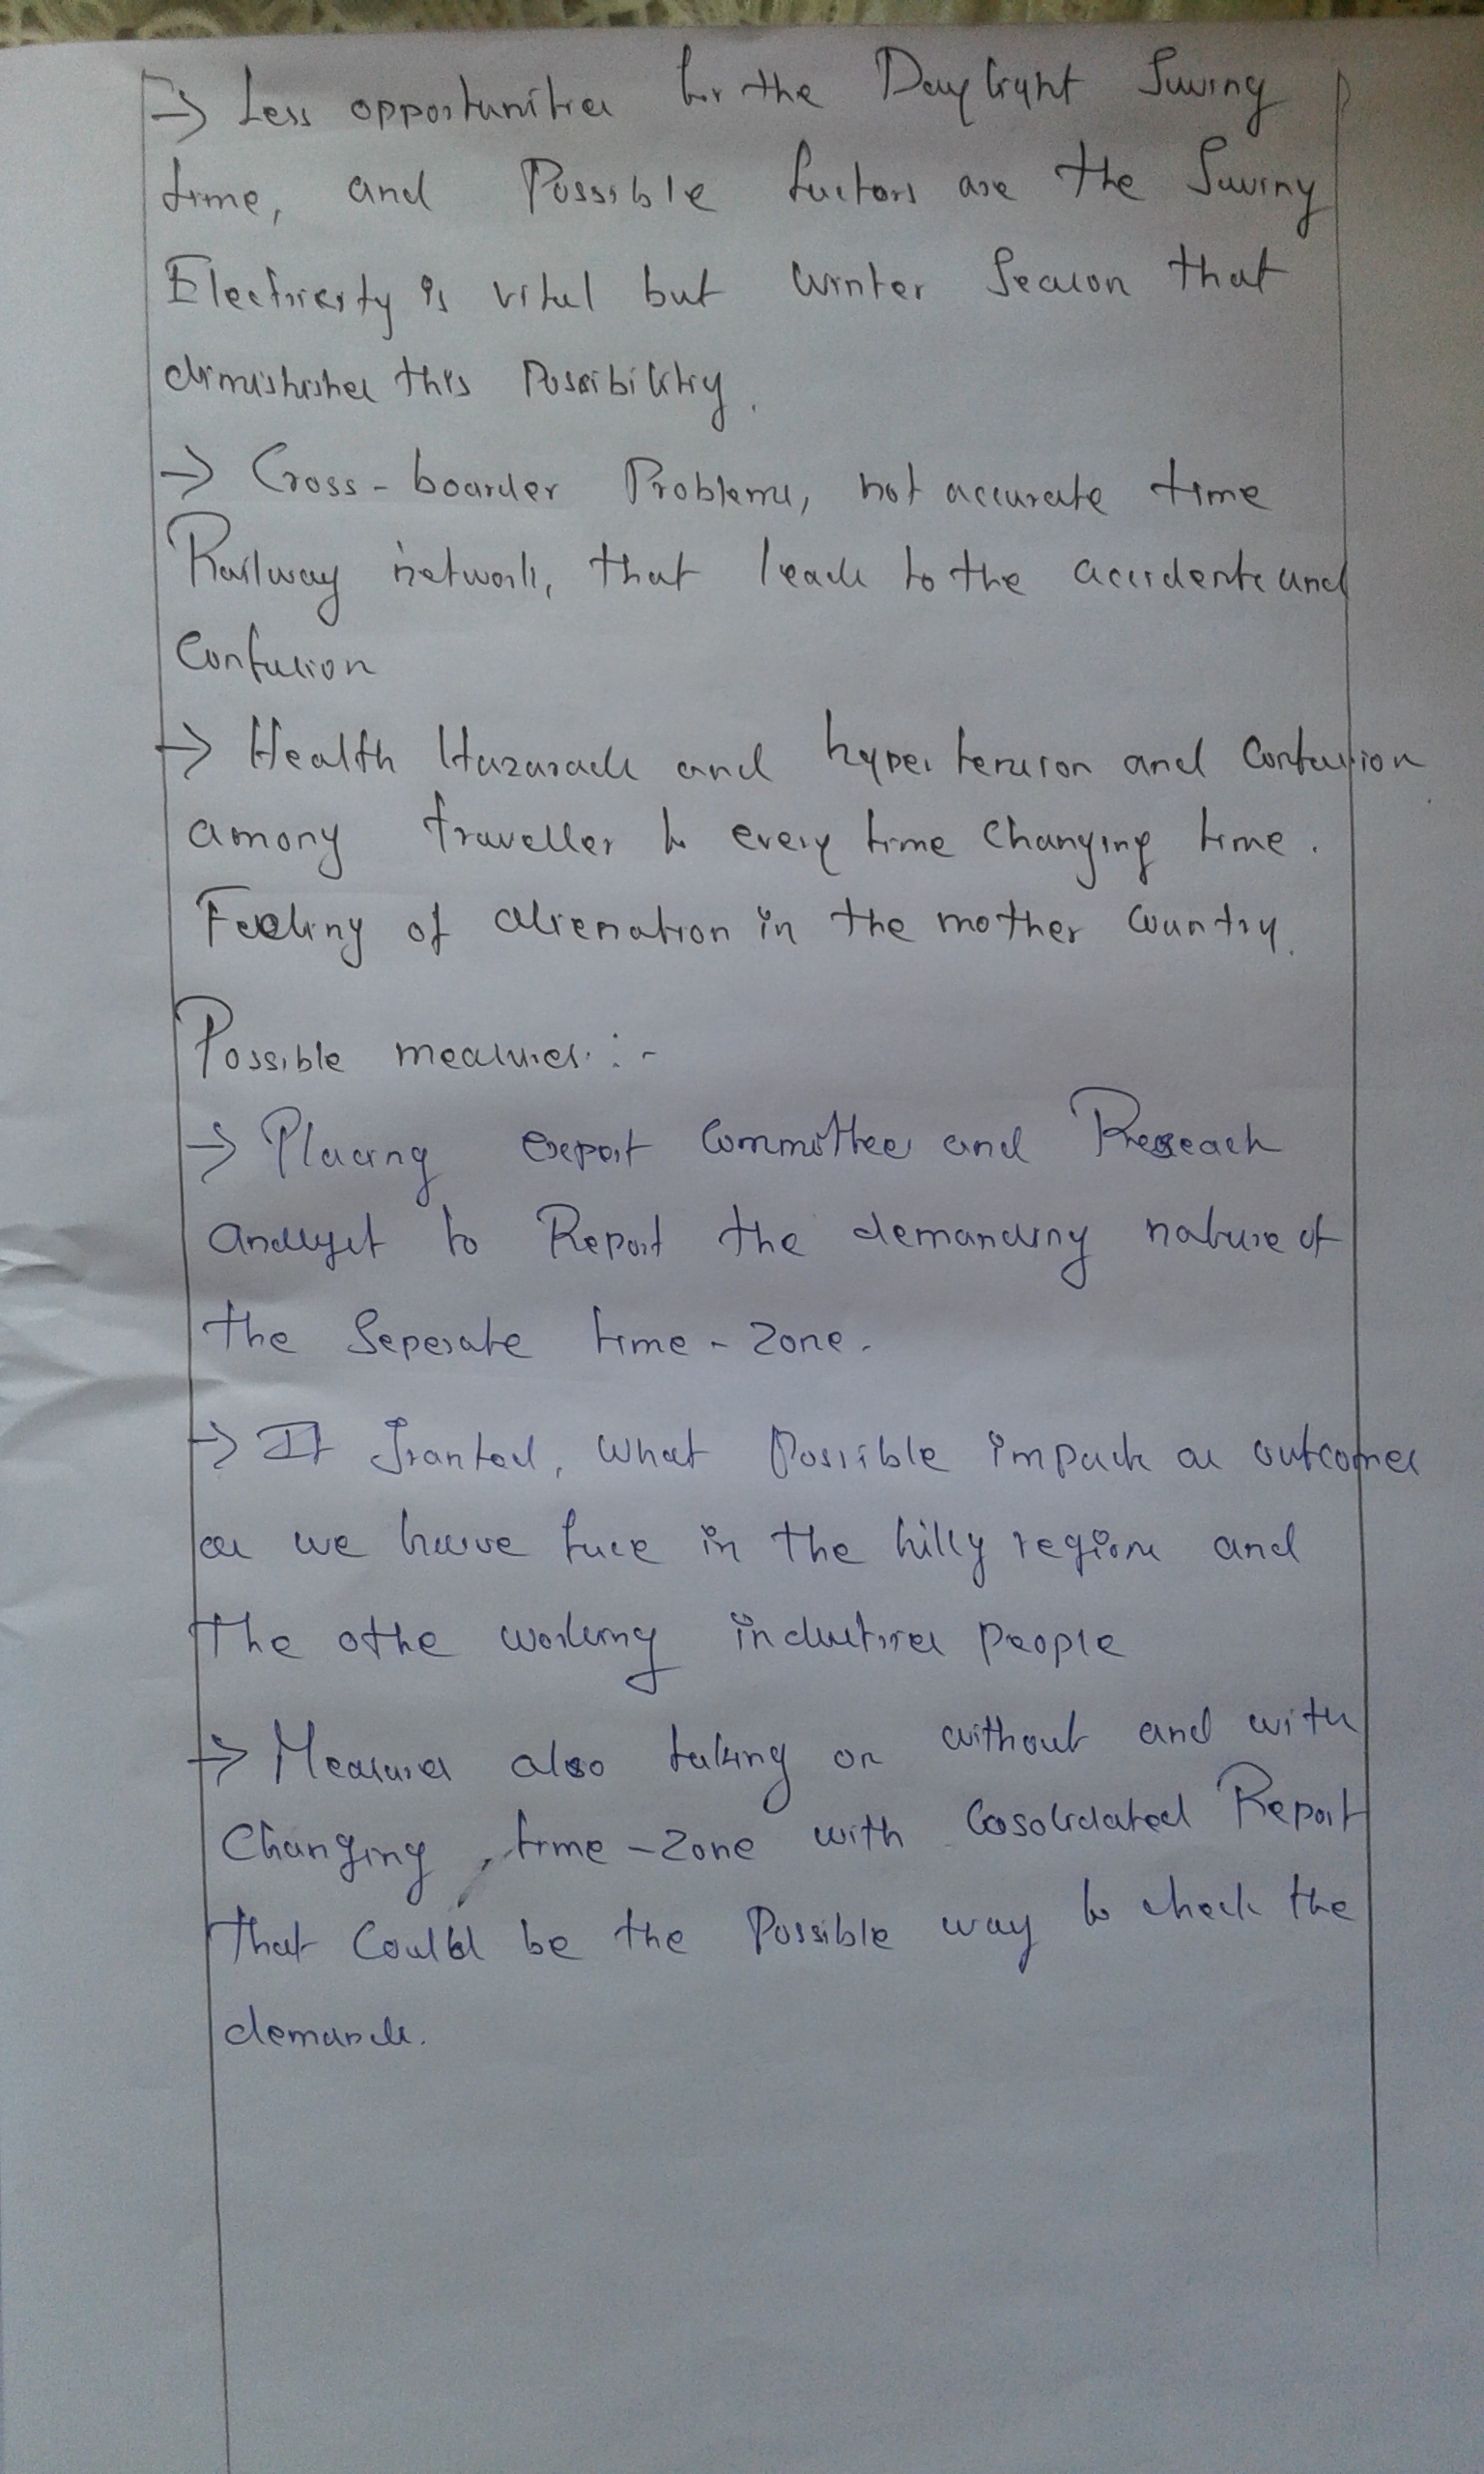 → Less opportunities for the Daylight Saving
time, and Possible factors are the Saving
Electricity is vital but winter Season that
diminishes this Possibility.
→ Cross-boarder Problems, not accurate time
Railway network, that leads to the accidents and
Confusion
→ Health Hazarads and hypertension and Confusion
among traveller to every time changing time.
Feeling of alienation in the mother Country.
Possible measures :-
→ Placing expert Committees and Reseach
analyst to Report the demanding nature of
the Seperate time-zone.
→ If Granted, what Possible impacts as outcomes
as we have face in the hilly regions and
the othe working industries people
→ Measures also taking on without and with
Changing time-zone with Cosolidated Report
that Could be the Possible way to check the
demands.